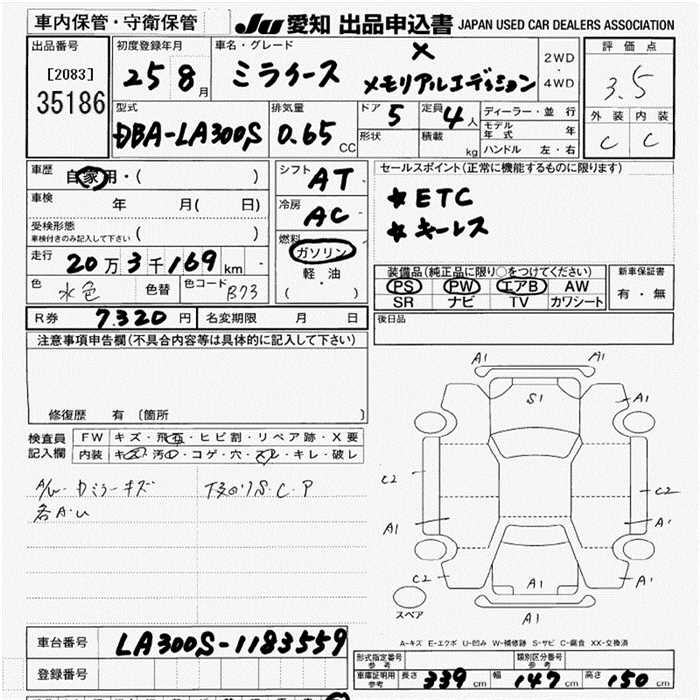 車内保管・守衛保管
JU 愛知 出品申込書 JAPAN USED CAR DEALERS ASSOCIATION
出品番号
[2083]
35186
初度登録年月
25 8月
車名・グレード
ミライース X メモリアルエディション
2WD
4WD
評価点
3.5
外装 内装
C C
型式
DBA-LA300S
排気量
0.65 CC
ドア 5
定員 4人
形状
積載 kg
ディーラー・並行
モデル年式 年
ハンドル 左・右
車歴
自家用・( )
車検 年 月( 日)
受検形態
車検付きのみ記入して下さい ( )
走行
20万3千169km
色 水色 色替
色コード B73
シフト AT
冷房 AC
燃料
ガソリン
軽・油
( )
セールスポイント(正常に機能するものに限ります)
★ETC
★キーレス
装備品(純正品に限り○をつけてください)
PS PW エアB AW
SR ナビ TV カワシート
新車保証書
有・無
R券 7.320円
名変期限 月 日
後日品
注意事項申告欄(不具合内容等は具体的に記入して下さい)
修復歴 有 [箇所 ]
検査員
記入欄
FW キズ・飛石・ヒビ割・リペア跡・X要
内装 キズ・汚れ・コゲ・穴・スレ・キレ・破レ
キズ
各A.U
S.C.P
A1 A1
S1
A1 A1
C2 C2
A1 A'
C2 A1 A'
A1
スペア
A-キズ E-エクボ U-凹み W-補修跡 S-サビ C-腐食 XX-交換済
車台番号 LA300S-1183559
登録番号
形式指定番号
参考
類別区分番号
参考
車庫証明用
参考
長さ 339cm 幅 147cm 高さ 150cm